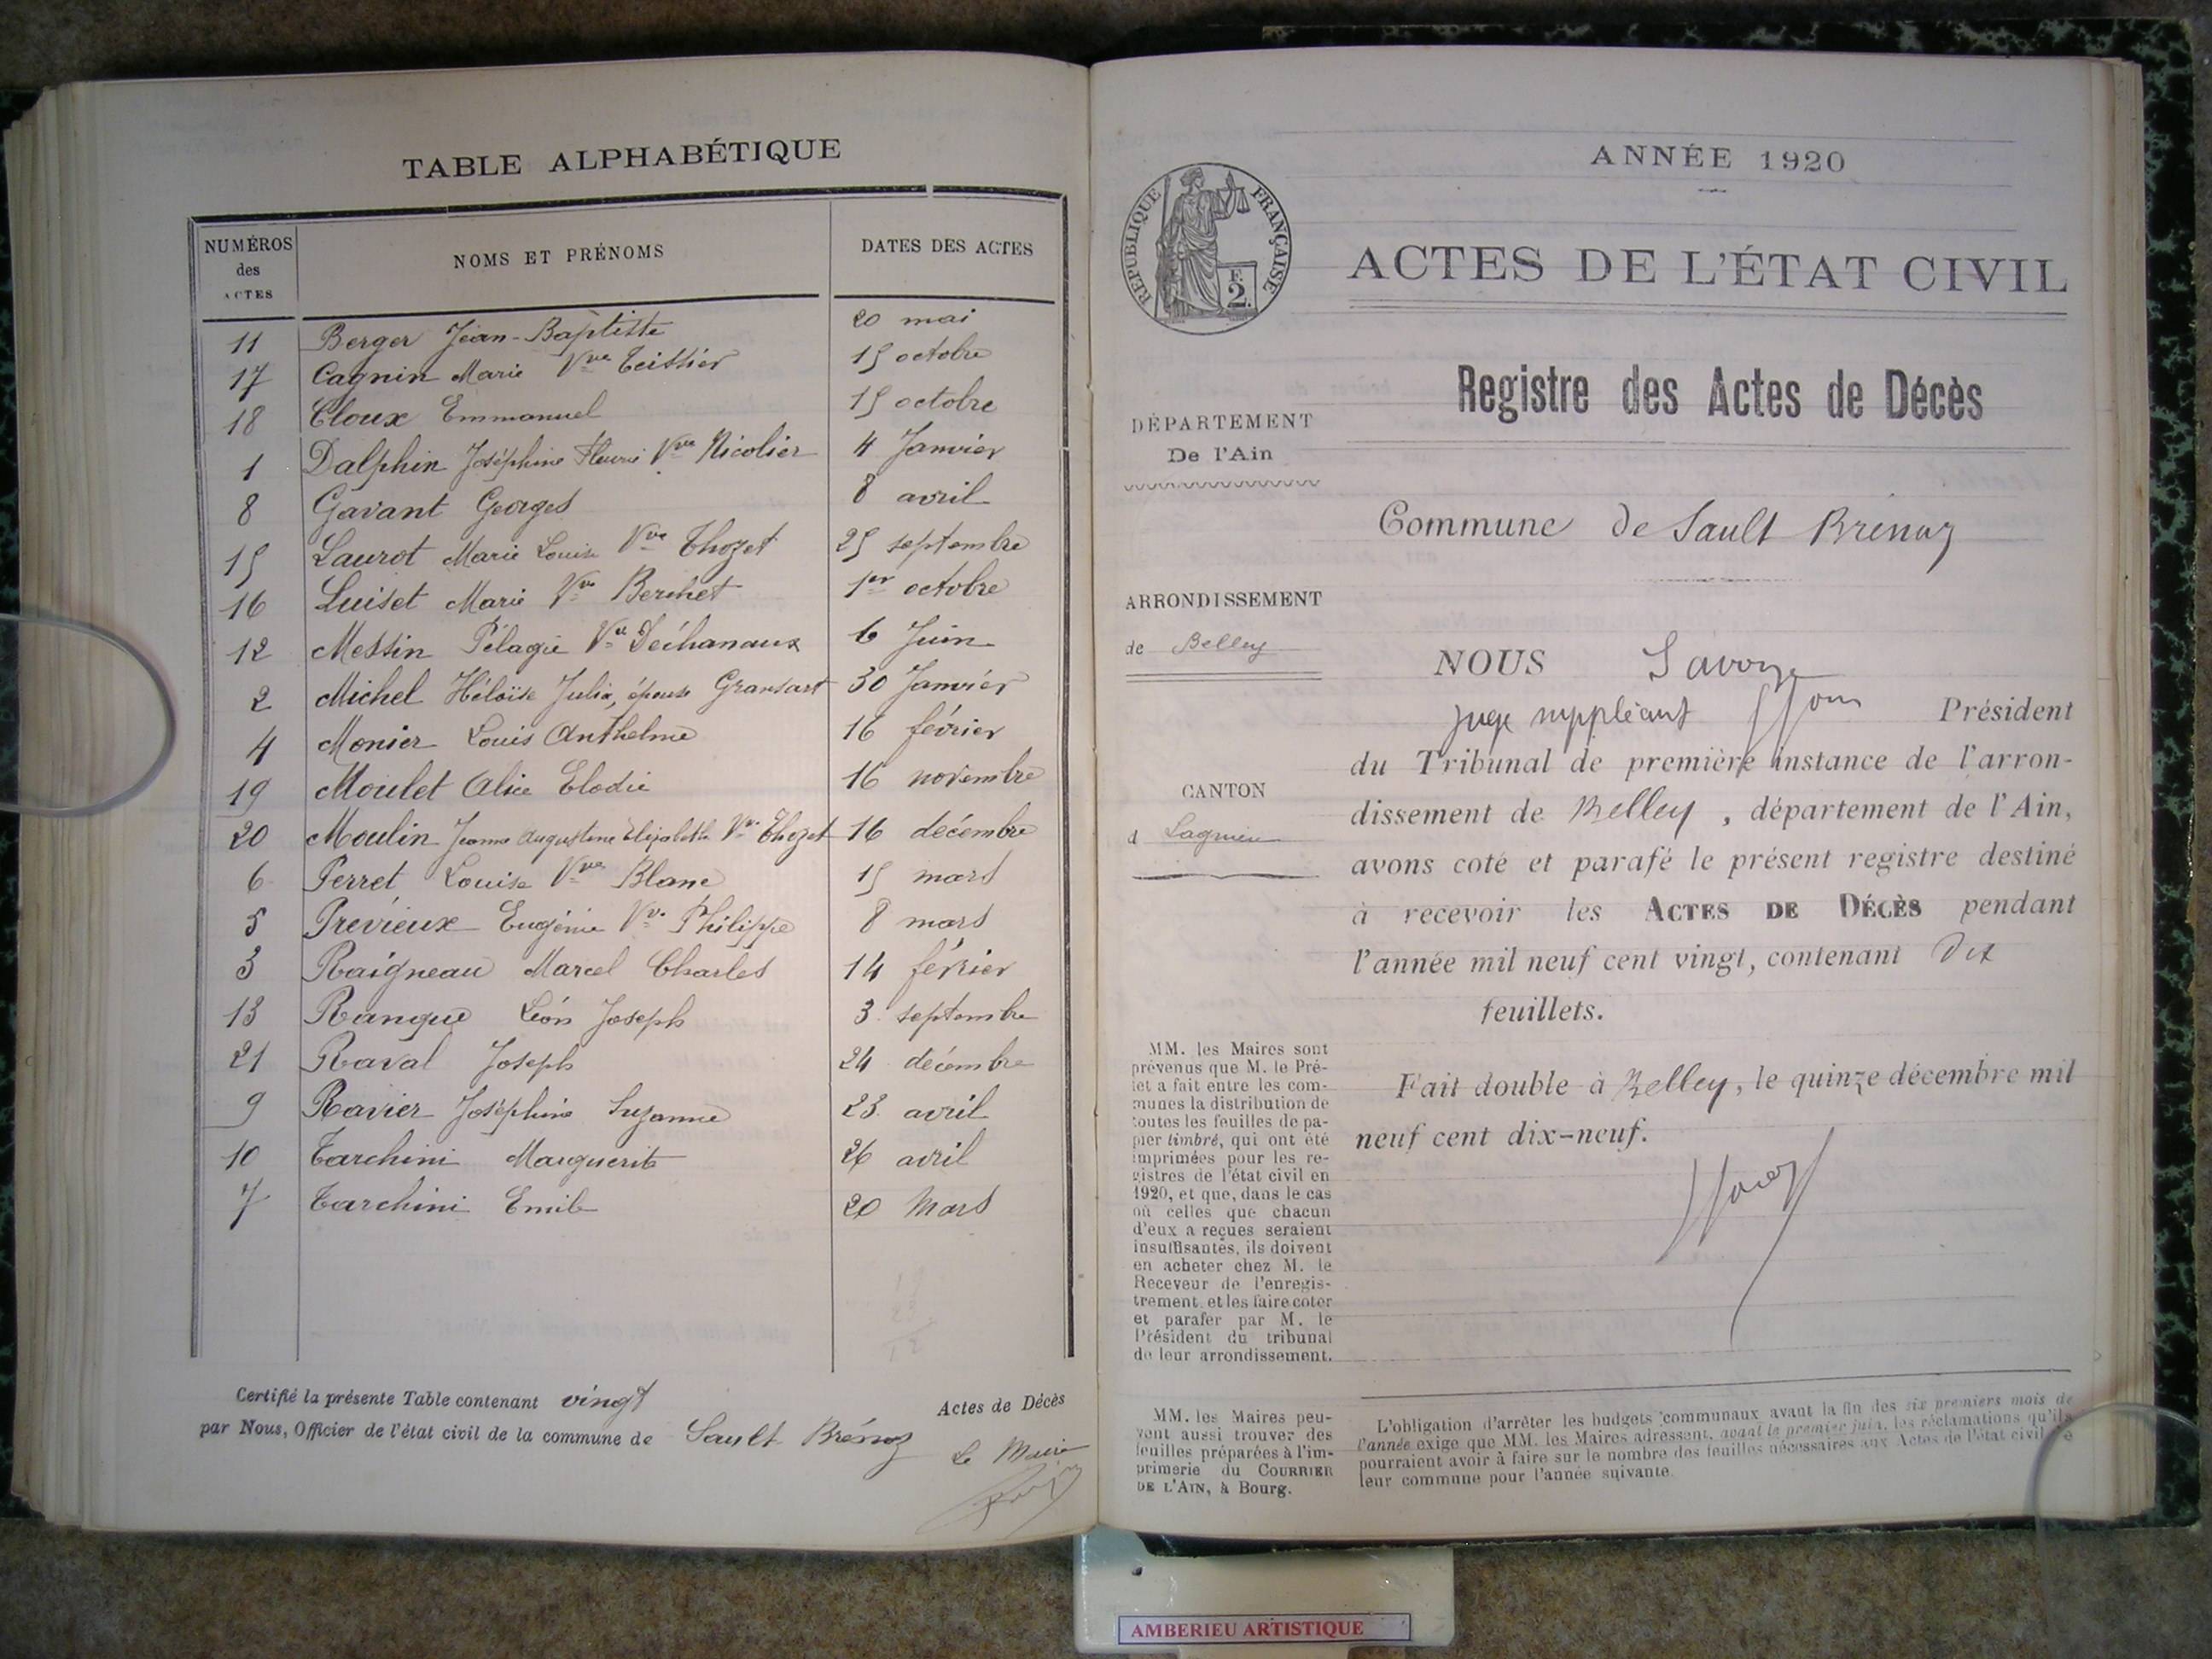 TABLE ALPHABÉTIQUE
NUMÉROS des ACTES NOMS ET PRÉNOMS DATES DES ACTES
11 Berger Jean-Baptiste 20 mai
17 Cagnin Marie Vve Teissier 15 octobre
18 Cloux Emmanuel 15 octobre
1 Dalphin Joséphine Fleurie Vve Nicolier 4 Janvier
8 Gavant Georges 8 avril
15 Laurot Marie Louise Vve Thozet 25 septembre
16 Luiset Marie Vve Berchet 1er octobre
12 Messin Pélagie Vve Déchanaux 6 Juin
2 Michel Héloïse Julia, épouse Gransart 30 Janvier
4 Monier Louis Anthelme 16 février
19 Moulet Alice Elodie 16 novembre
20 Moulin Jeanne Augustine Elizabeth Vve Thozet 16 décembre
6 Perret Louise Vve Blanc 15 mars
5 Previeux Eugénie Vve Philippe 8 mars
3 Raigneau Marcel Charles 14 février
13 Ranque Léon Joseph 3 septembre
21 Raval Joseph 24 décembre
9 Ravier Joséphine Suzanne 23 avril
10 Tarchini Marguerite 26 avril
7 Tarchini Emile 20 Mars
Certifié la présente Table contenant vingt Actes de Décès
par Nous, Officier de l'état civil de la commune de Sault Brénaz
Le Maire
ANNÉE 1920
RÉPUBLIQUE FRANÇAISE
F. 2.
ACTES DE L'ÉTAT CIVIL
Registre des Actes de Décès
DÉPARTEMENT
De l'Ain
Commune de Sault Brénaz
ARRONDISSEMENT
de Belley
CANTON
d Lagnieu
NOUS Savoye
juge suppléant Président
du Tribunal de première instance de l'arron-
dissement de Belley, département de l'Ain,
avons coté et parafé le présent registre destiné
à recevoir les ACTES DE DÉCÈS pendant
l'année mil neuf cent vingt, contenant Dix
feuillets.
Fait double à Belley, le quinze décembre mil
neuf cent dix-neuf.
MM. les Maires sont
prévenus que M. le Pré-
fet a fait entre les com-
munes la distribution de
toutes les feuilles de pa-
pier timbré, qui ont été
imprimées pour les re-
gistres de l'état civil en
1920, et que, dans le cas
où celles que chacun
d'eux a reçues seraient
insuffisantes, ils doivent
en acheter chez M. le
Receveur de l'enregis-
trement, et les faire coter
et parafer par M. le
Président du tribunal
de leur arrondissement.
MM. les Maires peu-
vent aussi trouver des
feuilles préparées à l'im-
primerie du COURRIER
DE L'AIN, à Bourg.
L'obligation d'arrêter les budgets communaux avant la fin des six premiers mois de
l'année exige que MM. les Maires adressent, avant le premier juin, les réclamations qu'ils
pourraient avoir à faire sur le nombre des feuilles nécessaires aux Actes de l'état civil de
leur commune pour l'année suivante.
AMBERIEU ARTISTIQUE